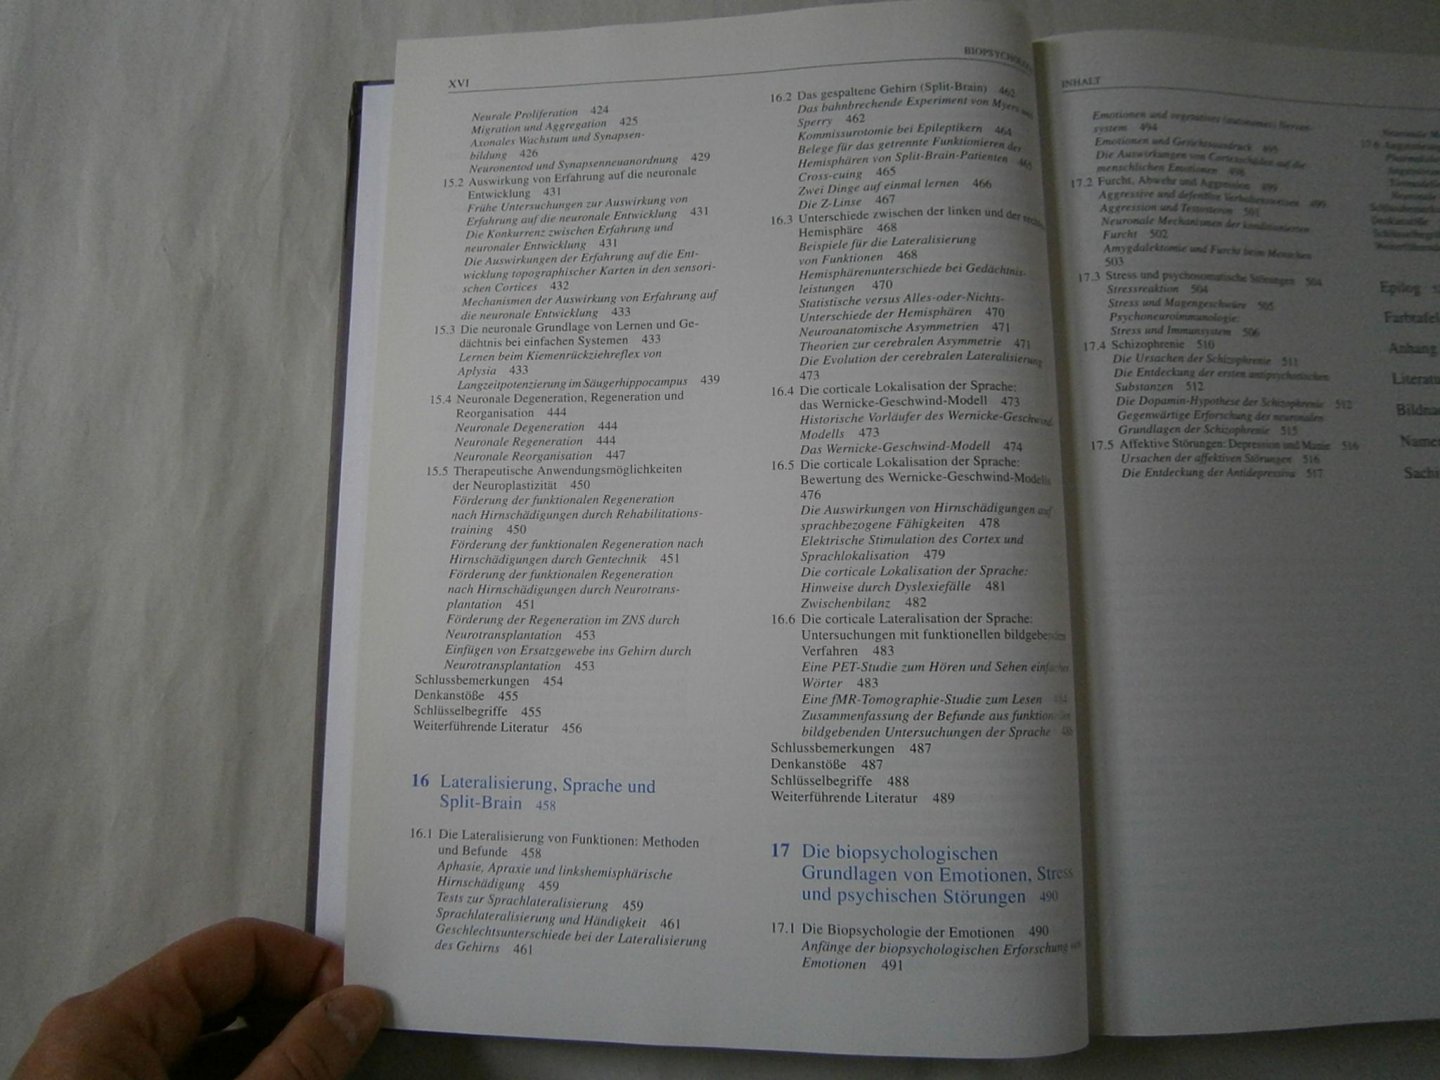 XVI
Neurale Proliferation 424
Migration und Aggregation 425
Axonales Wachstum und Synapsen-
bildung 426
Neuronentod und Synapsenneuanordnung 429
15.2 Auswirkung von Erfahrung auf die neuronale
Entwicklung 431
Frühe Untersuchungen zur Auswirkung von
Erfahrung auf die neuronale Entwicklung 431
Die Konkurrenz zwischen Erfahrung und
neuronaler Entwicklung 431
Die Auswirkungen der Erfahrung auf die Ent-
wicklung topographischer Karten in den sensori-
schen Cortices 432
Mechanismen der Auswirkung von Erfahrung auf
die neuronale Entwicklung 433
15.3 Die neuronale Grundlage von Lernen und Ge-
dächtnis bei einfachen Systemen 433
Lernen beim Kiemenrückziehreflex von
Aplysia 433
Langzeitpotenzierung im Säugerhippocampus 439
15.4 Neuronale Degeneration, Regeneration und
Reorganisation 444
Neuronale Degeneration 444
Neuronale Regeneration 444
Neuronale Reorganisation 447
15.5 Therapeutische Anwendungsmöglichkeiten
der Neuroplastizität 450
Förderung der funktionalen Regeneration
nach Hirnschädigungen durch Rehabilitations-
training 450
Förderung der funktionalen Regeneration nach
Hirnschädigungen durch Gentechnik 451
Förderung der funktionalen Regeneration
nach Hirnschädigungen durch Neurotrans-
plantation 451
Förderung der Regeneration im ZNS durch
Neurotransplantation 453
Einfügen von Ersatzgewebe ins Gehirn durch
Neurotransplantation 453
Schlussbemerkungen 454
Denkanstöße 455
Schlüsselbegriffe 455
Weiterführende Literatur 456
16 Lateralisierung, Sprache und
Split-Brain 458
16.1 Die Lateralisierung von Funktionen: Methoden
und Befunde 458
Aphasie, Apraxie und linkshemisphärische
Hirnschädigung 459
Tests zur Sprachlateralisierung 459
Sprachlateralisierung und Händigkeit 461
Geschlechtsunterschiede bei der Lateralisierung
des Gehirns 461
16.2 Das gespaltene Gehirn (Split-Brain) 462
Das bahnbrechende Experiment von Myers und
Sperry 462
Kommissurotomie bei Epileptikern 464
Belege für das getrennte Funktionieren der
Hemisphären von Split-Brain-Patienten 465
Cross-cuing 465
Zwei Dinge auf einmal lernen 466
Die Z-Linse 467
16.3 Unterschiede zwischen der linken und der
Hemisphäre 468
Beispiele für die Lateralisierung
von Funktionen 468
Hemisphärenunterschiede bei Gedächtnis-
leistungen 470
Statistische versus Alles-oder-Nichts-
Unterschiede der Hemisphären 470
Neuroanatomische Asymmetrien 471
Theorien zur cerebralen Asymmetrie 471
Die Evolution der cerebralen Lateralisierung
473
16.4 Die corticale Lokalisation der Sprache:
das Wernicke-Geschwind-Modell 473
Historische Vorläufer des Wernicke-Geschwind-
Modells 473
Das Wernicke-Geschwind-Modell 474
16.5 Die corticale Lokalisation der Sprache:
Bewertung des Wernicke-Geschwind-Modells
476
Die Auswirkungen von Hirnschädigungen auf
sprachbezogene Fähigkeiten 478
Elektrische Stimulation des Cortex und
Sprachlokalisation 479
Die corticale Lokalisation der Sprache:
Hinweise durch Dyslexiefälle 481
Zwischenbilanz 482
16.6 Die corticale Lateralisation der Sprache:
Untersuchungen mit funktionellen bildgebenden
Verfahren 483
Eine PET-Studie zum Hören und Sehen einfacher
Wörter 483
Eine fMR-Tomographie-Studie zum Lesen
Zusammenfassung der Befunde aus
bildgebenden Untersuchungen der Sprache
Schlussbemerkungen 487
Denkanstöße 487
Schlüsselbegriffe 488
Weiterführende Literatur 489
17 Die biopsychologischen
Grundlagen von Emotionen, Stress
und psychischen Störungen 490
17.1 Die Biopsychologie der Emotionen 490
Anfänge der biopsychologischen Erforschung von
Emotionen 491
INHALT
Emotionen und vegetatives (autonomes) Nerven-
system 494
Emotionen und Gesichtsausdruck 495
Die Auswirkungen von Cortexschäden auf die
menschlichen Emotionen 498
17.2 Furcht, Abwehr und Aggression 499
Aggressive und defensive Verhaltensweisen 499
Aggression und Testosteron 501
Neuronale Mechanismen der konditionierten
Furcht 502
Amygdalektomie und Furcht beim Menschen
503
17.3 Stress und psychosomatische Störungen 504
Stressreaktion 504
Stress und Magengeschwüre 505
Psychoneuroimmunologie:
Stress und Immunsystem 506
17.4 Schizophrenie 510
Die Ursachen der Schizophrenie 511
Die Entdeckung der ersten antipsychotischen
Substanzen 512
Die Dopamin-Hypothese der Schizophrenie 512
Gegenwärtige Erforschung der neuronalen
Grundlagen der Schizophrenie 515
17.5 Affektive Störungen: Depression und Manie 516
Ursachen der affektiven Störungen 516
Die Entdeckung der Antidepressiva 517
Epilog
Anhang